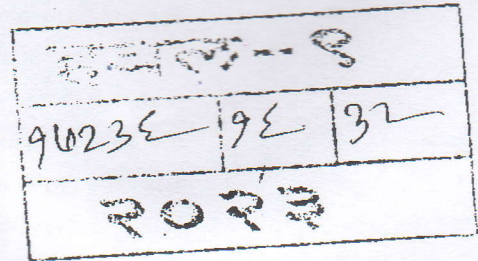 १७२३६ १६ ३२
२०२३